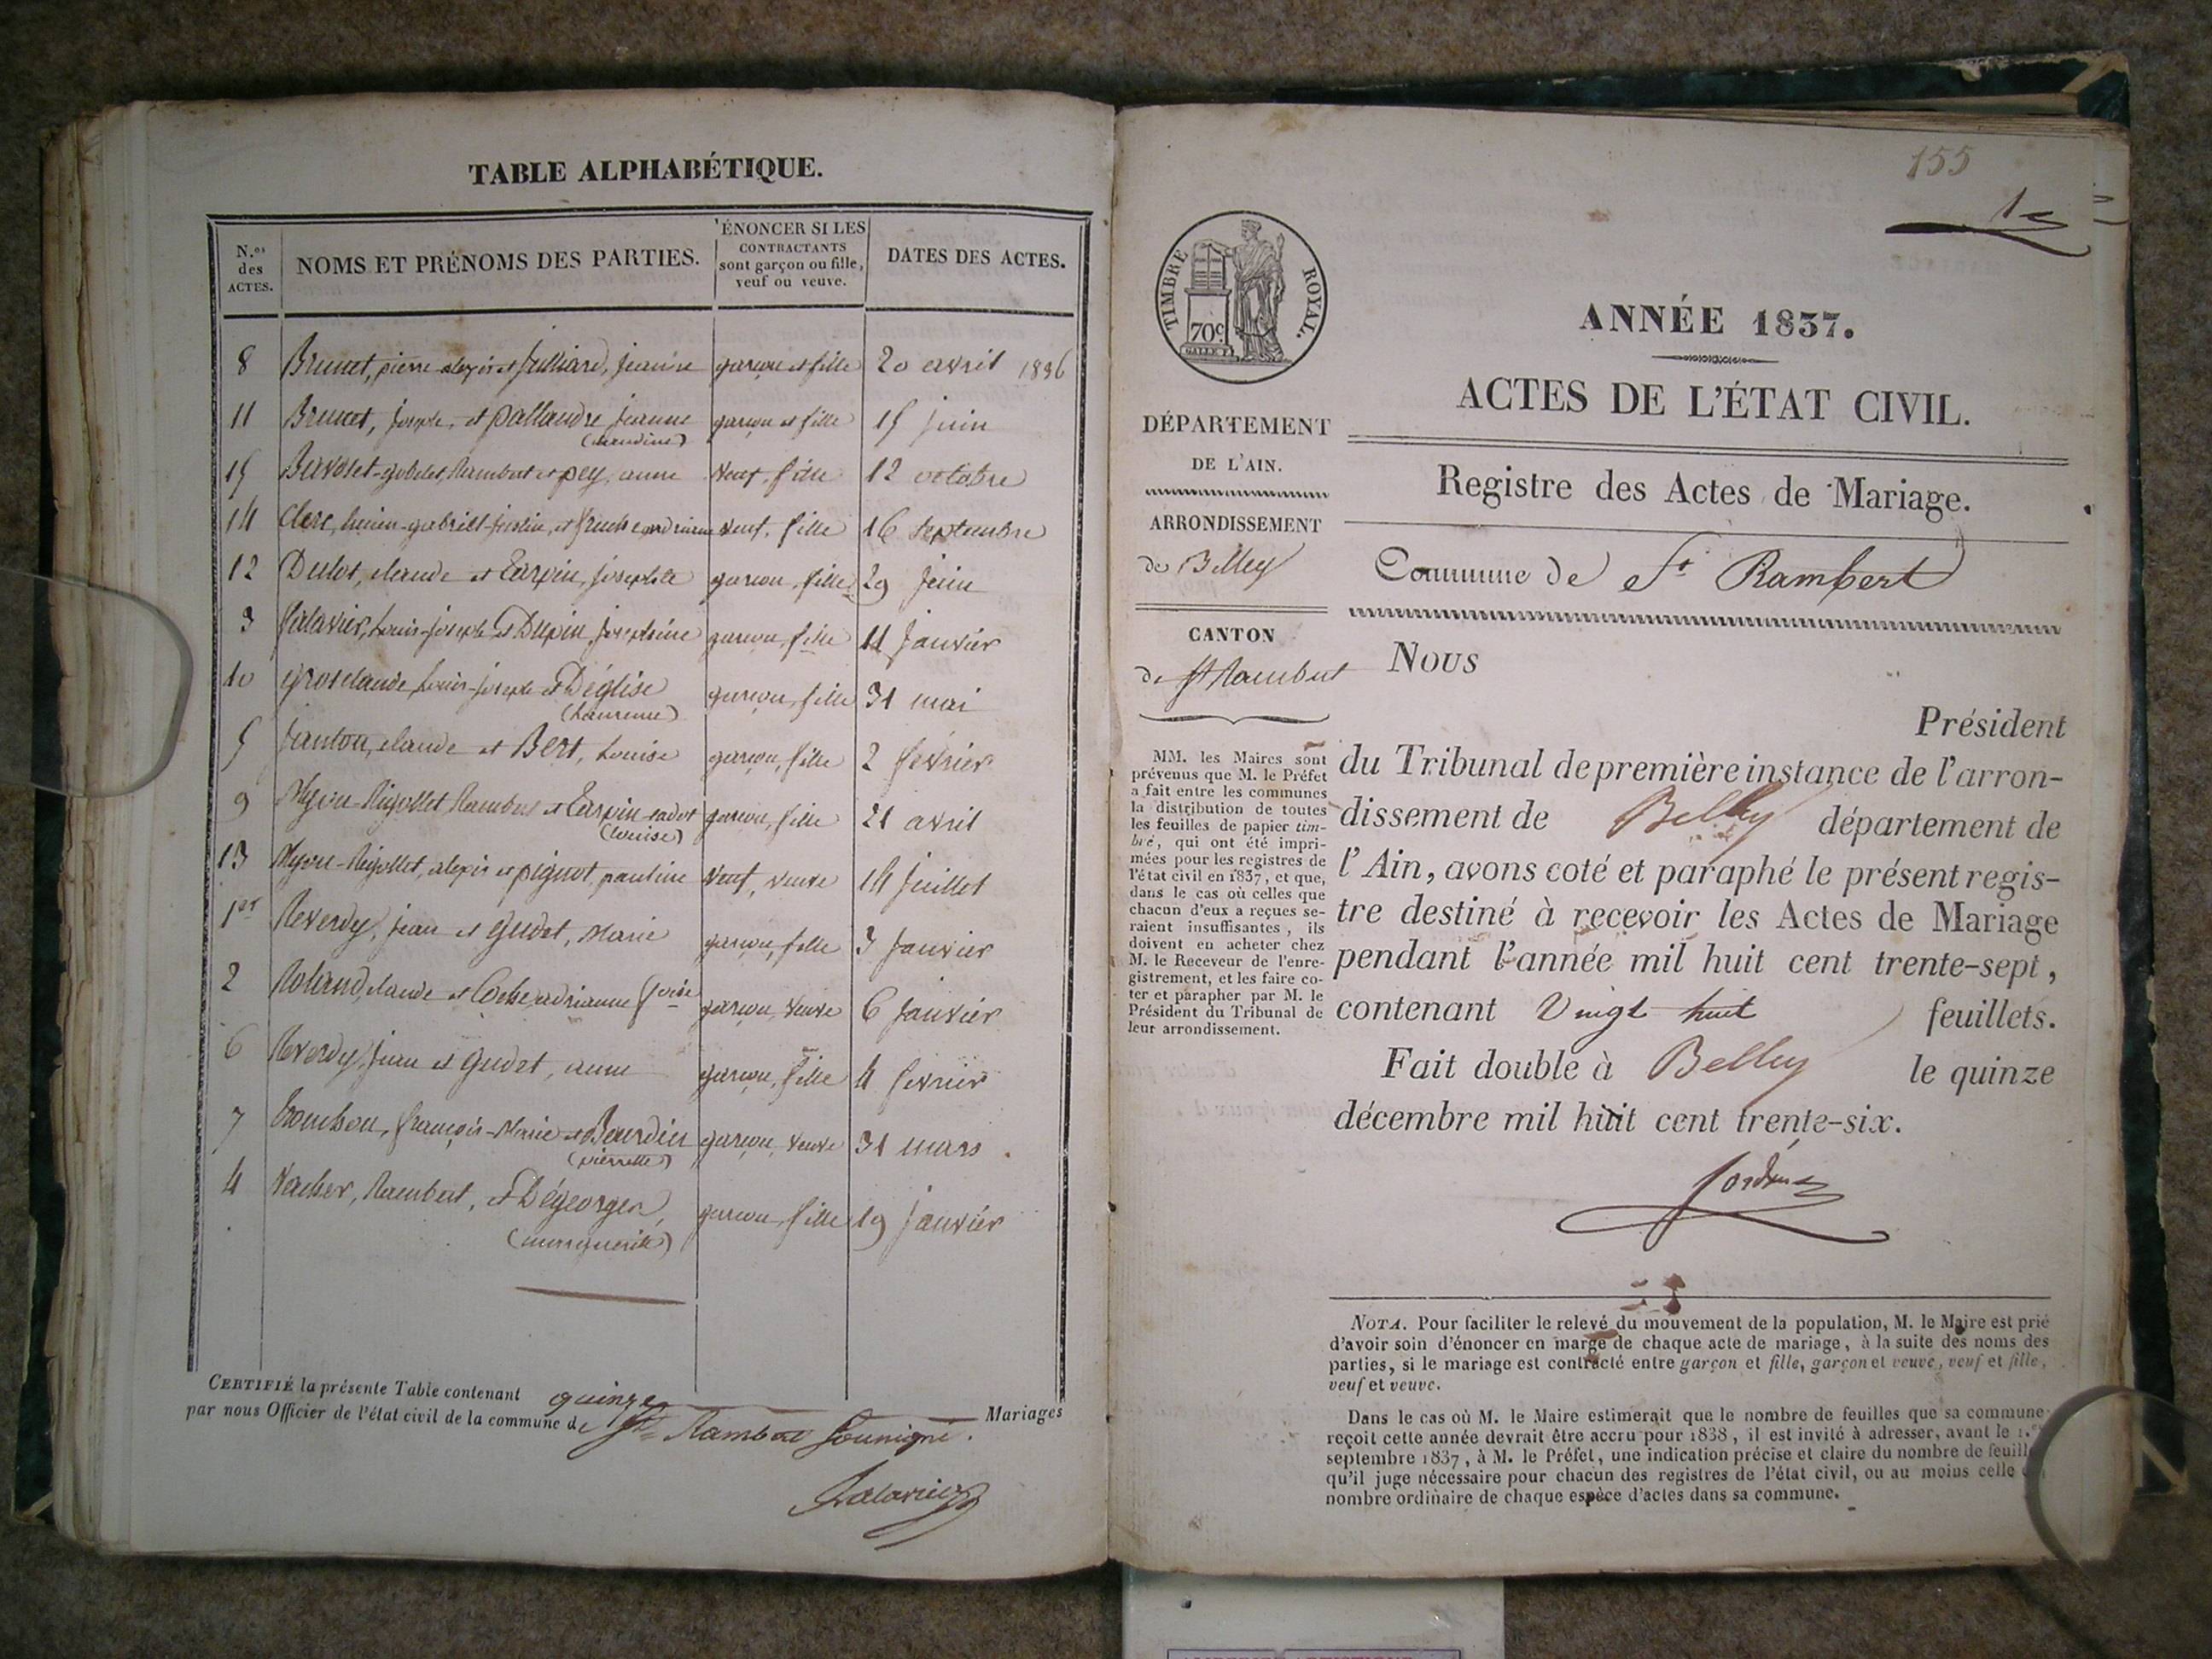 TABLE ALPHABÉTIQUE.
N.os des ACTES.
NOMS ET PRÉNOMS DES PARTIES.
ÉNONCER SI LES CONTRACTANTS sont garçon ou fille, veuf ou veuve.
DATES DES ACTES.
8 Brunet, pierre alexis et Julliard, Jeanne garçon et fille 20 avril 1836
11 Brunet, Joseph, et pallandre Jeanne garçon et fille 15 Juin
(claudine)
15 Rambert et pey, anne veuf, fille 12 octobre
14 Clerc, lucien-gabriel-justin, et veuf, fille 16 Septembre
12 Dulot, claude et Tarpin, josephte garçon, fille 29 Juin
3 falavier, Louis-Joseph et Dupin Josephine garçon, fille 11 Janvier
10 Groselaude Louis-Joseph et Déglise garçon, fille 31 mai
(Laurence)
5 Janton, claude et Bert, Louise garçon, fille 2 février
9 Rigollet Rambert et Tarpin cadot garçon, fille 21 avril
(Louise)
13 Rigollet, alexis et pignot, pauline veuf, veuve 14 Juillet
1er Reverdy, Jean et Gudet, Marie garçon, fille 3 Janvier
2 Roland, claude et adrianne garçon, veuve 6 Janvier
6 Reverdy, Jean et Gudet, anne garçon, fille 4 février
7 françois-Marie et Bourdin garçon, veuve 31 mars
(pierrette)
4 Vacher, Rambert, et Dégeorges, garçon, fille 19 Janvier
(marguerite)
CERTIFIÉ la présente Table contenant quinze Mariages
par nous Officier de l'état civil de la commune de St Rambert Soussigné.
falavier
155
TIMBRE ROYAL.
70c
ANNÉE 1837.
ACTES DE L'ÉTAT CIVIL.
Registre des Actes de Mariage.
Commune de St Rambert
DÉPARTEMENT
DE L'AIN.
ARRONDISSEMENT
de Belley
CANTON
de St Rambert
MM. les Maires sont
prévenus que M. le Préfet
a fait entre les communes
la distribution de toutes
les feuilles de papier tim-
bré, qui ont été impri-
mées pour les registres de
l'état civil en 1837, et que,
dans le cas où celles que
chacun d'eux a reçues se-
raient insuffisantes, ils
doivent en acheter chez
M. le Receveur de l'enre-
gistrement, et les faire co-
ter et parapher par M. le
Président du Tribunal de
leur arrondissement.
Nous
Président
du Tribunal de première instance de l'arron-
dissement de Belley département de
l'Ain, avons coté et paraphé le présent regis-
tre destiné à recevoir les Actes de Mariage
pendant l'année mil huit cent trente-sept,
contenant Vingt huit feuillets.
Fait double à Belley le quinze
décembre mil huit cent trente-six.
NOTA. Pour faciliter le relevé du mouvement de la population, M. le Maire est prié
d'avoir soin d'énoncer en marge de chaque acte de mariage, à la suite des noms des
parties, si le mariage est contracté entre garçon et fille, garçon et veuve, veuf et fille,
veuf et veuve.
Dans le cas où M. le Maire estimerait que le nombre de feuilles que sa commune
reçoit cette année devrait être accru pour 1838, il est invité à adresser, avant le 1.er
septembre 1837, à M. le Préfet, une indication précise et claire du nombre de feuill
qu'il juge nécessaire pour chacun des registres de l'état civil, ou au moins celle
nombre ordinaire de chaque espèce d'actes dans sa commune.